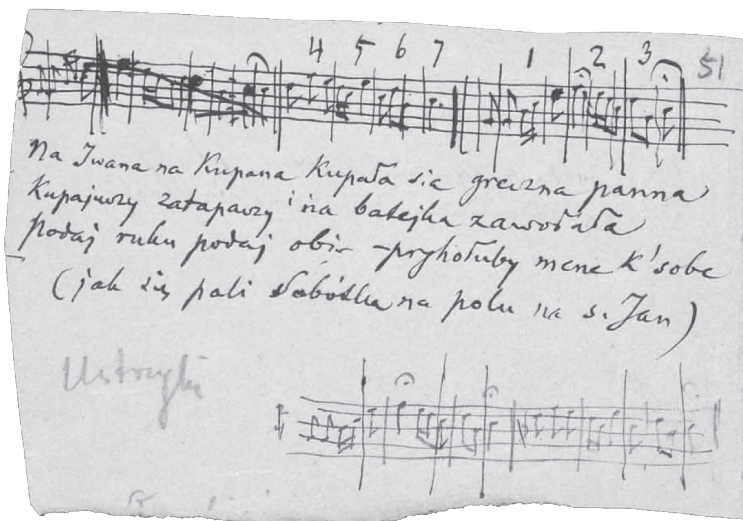 4 5 6 7 1 2 3 51
Na Iwana na Kupana Kupała sia greczna panna
Kupajuczy zatapawszy i na batejka zawołała
podaj ruku podaj obie - pryhołuby mene k'sobe
(jak się pali Sobótka na polu na s. Jan)
Ustrzyki